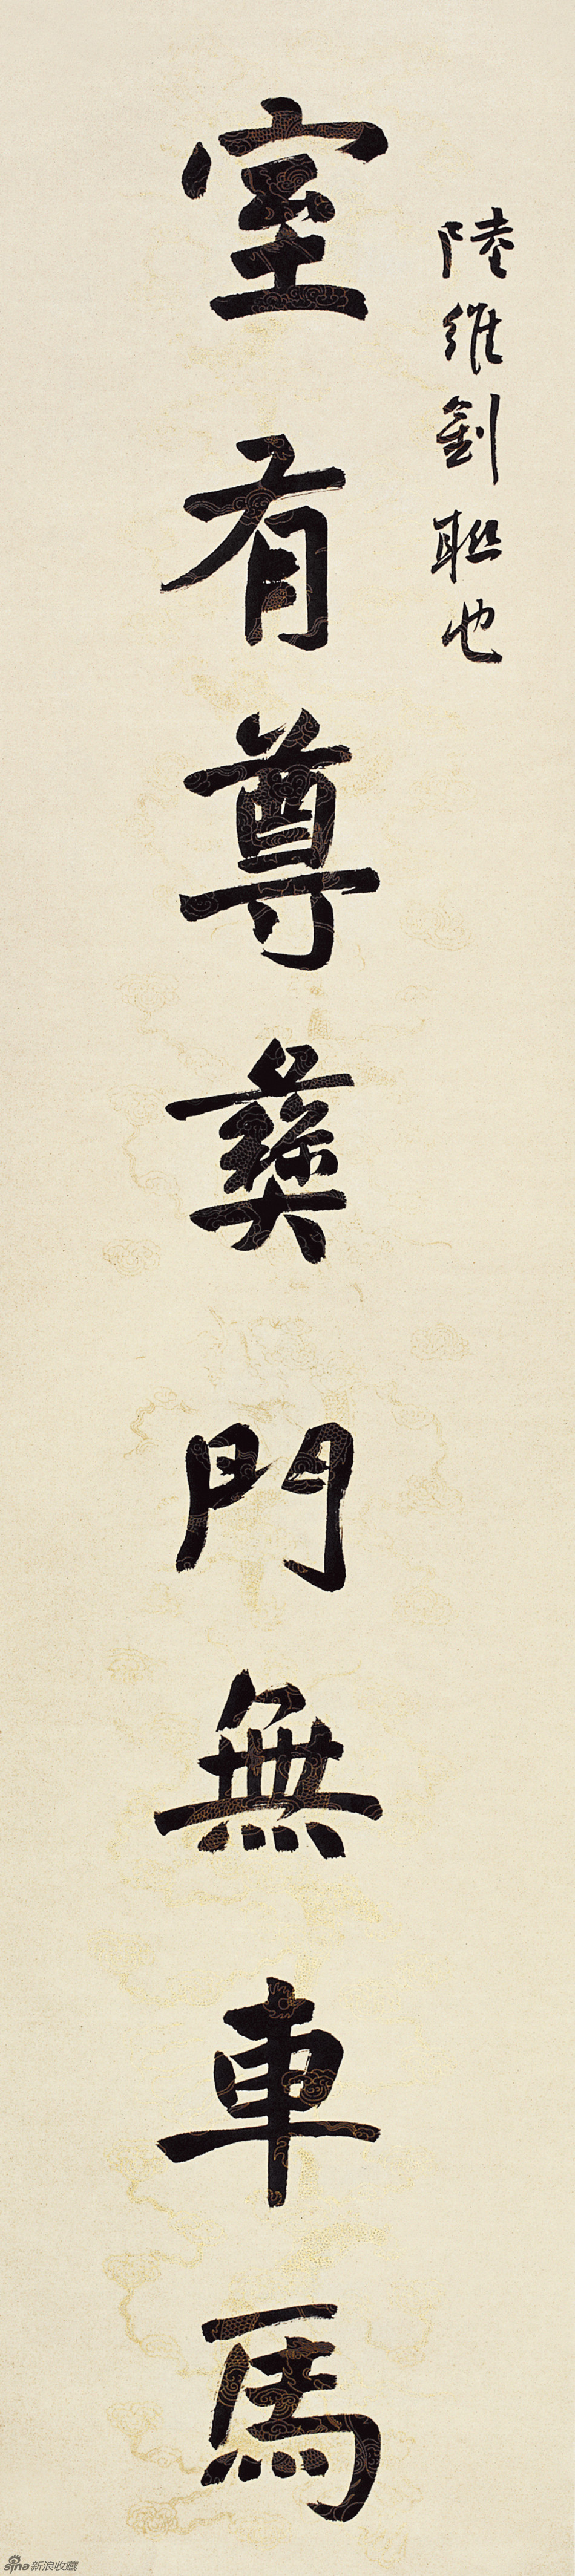 陸維釗聯也
室有尊彝門無車馬
sina新浪收藏